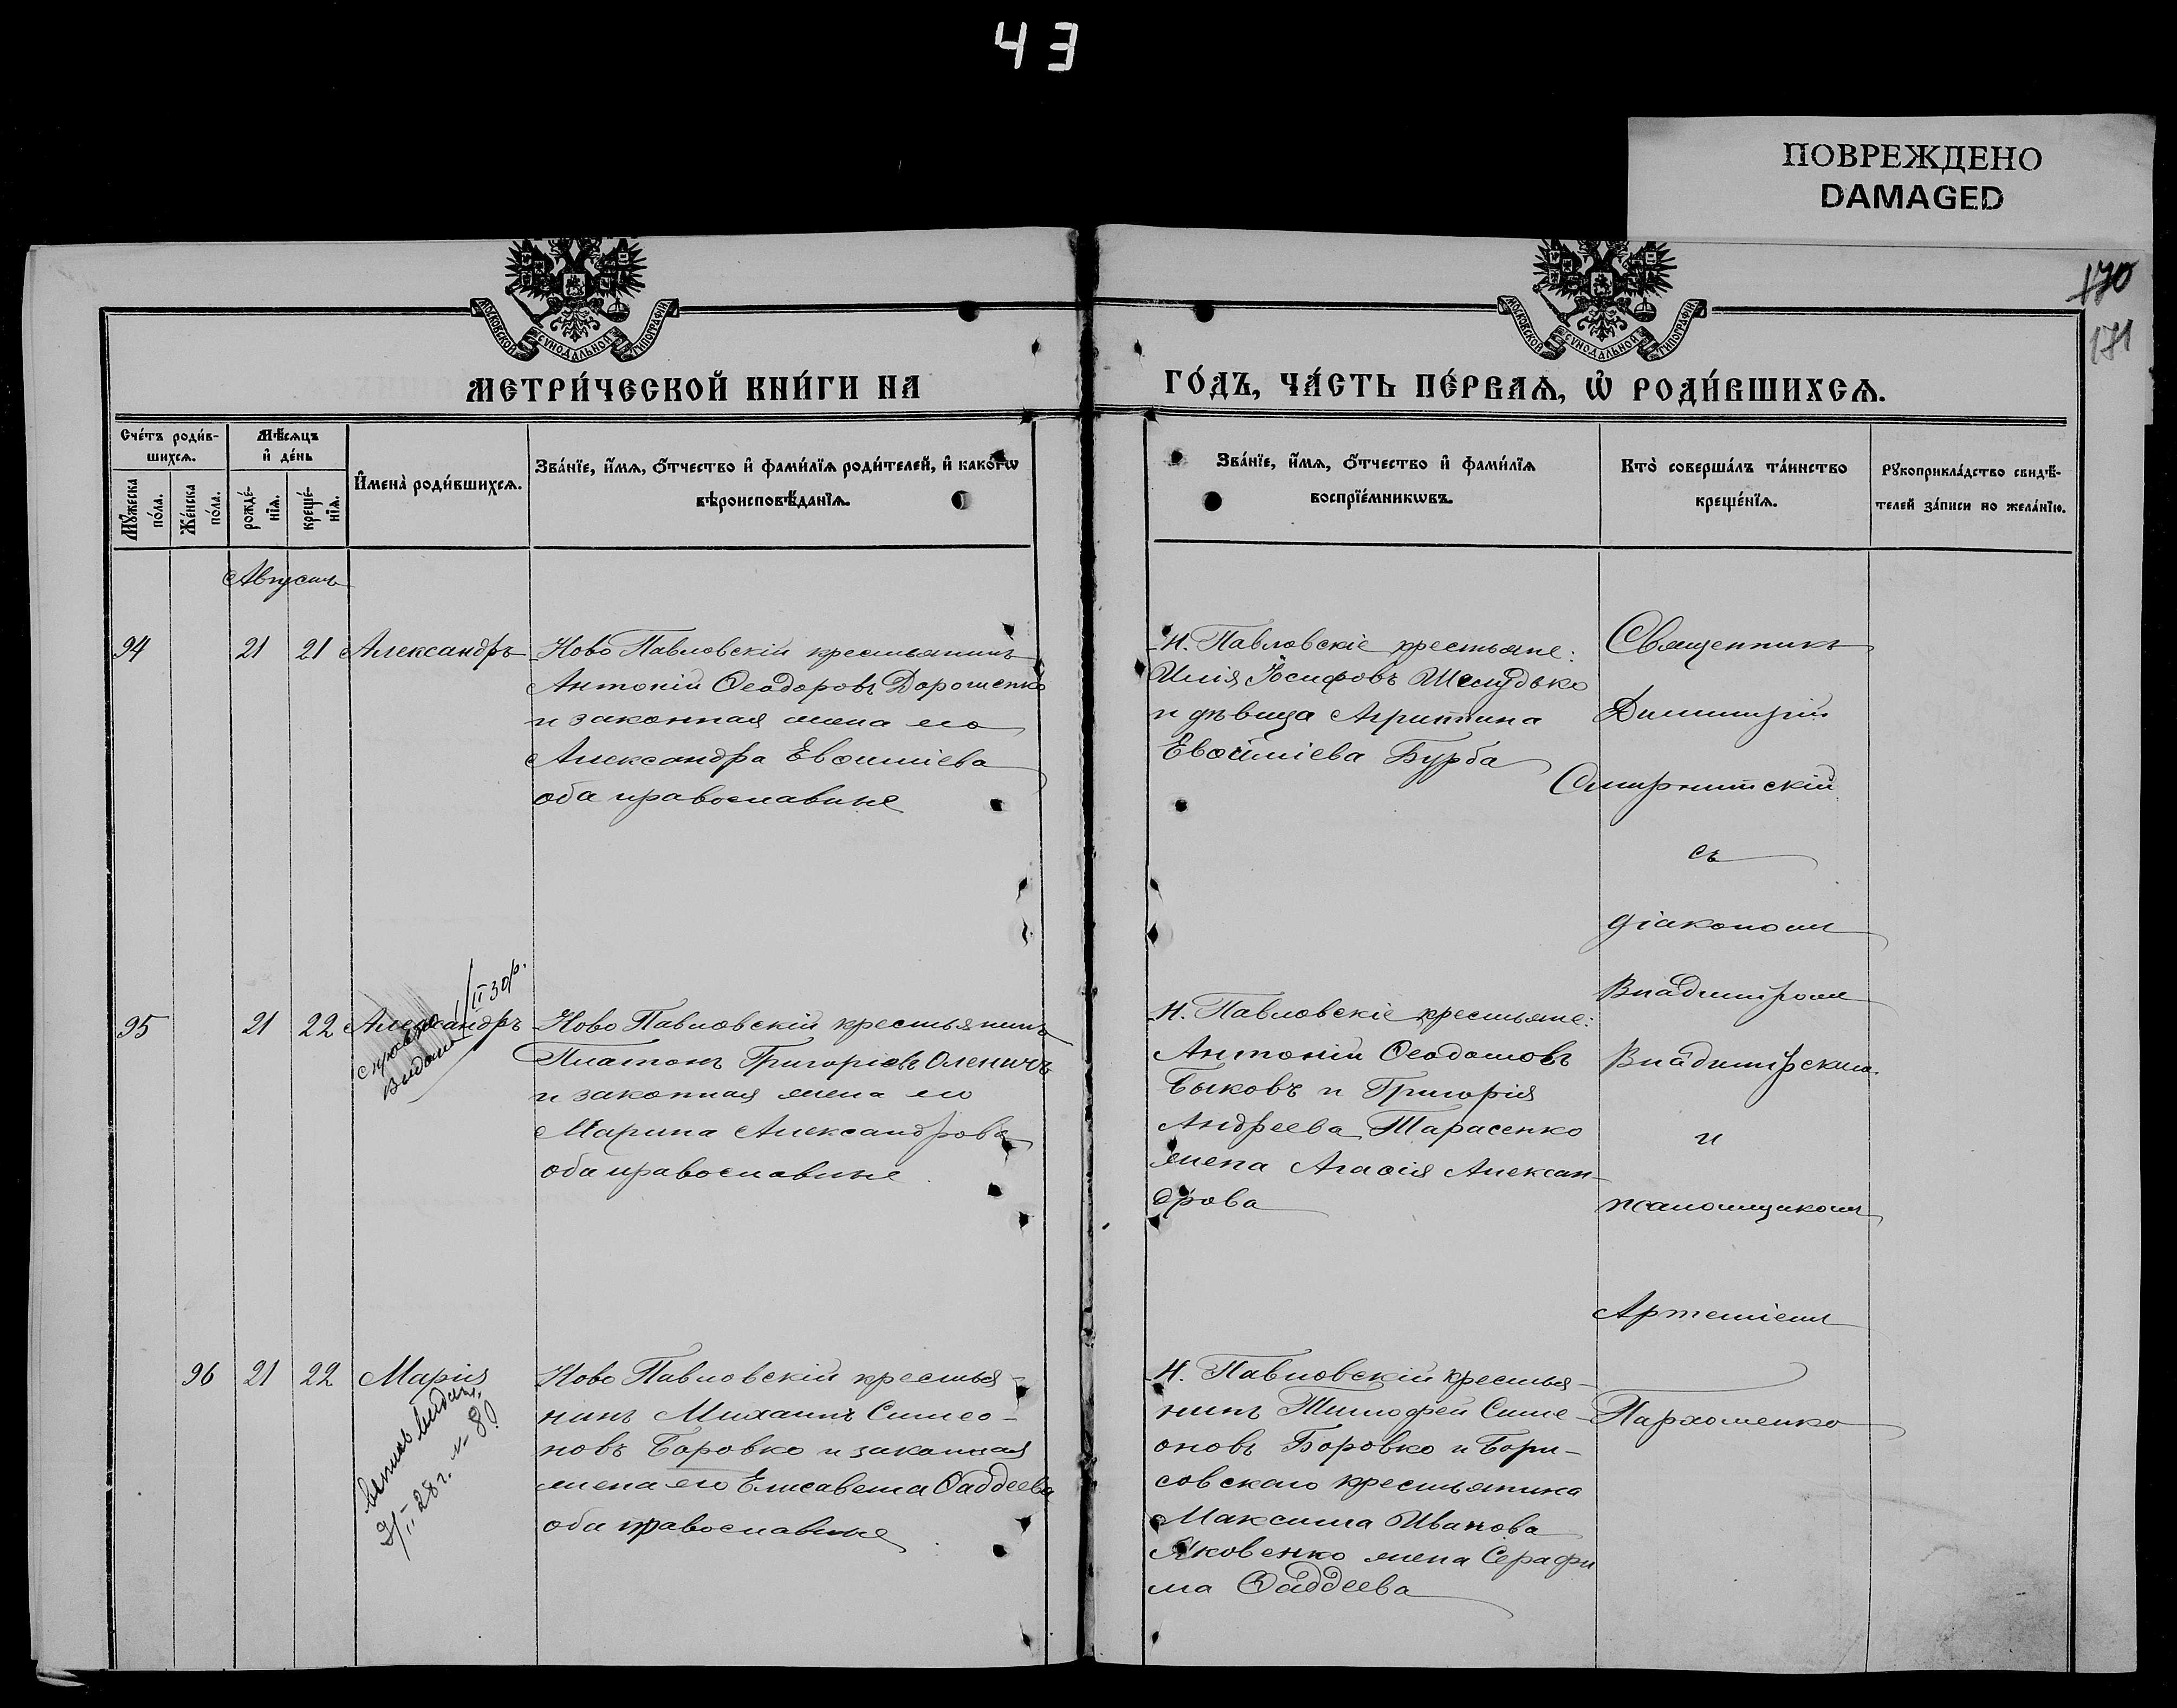 43
ПОВРЕЖДЕНО
DAMAGED
170
171
МОСКОВСКОЙ СѴНОДАЛЬНОЙ ТИПОГРАФІИ
МОСКОВСКОЙ СѴНОДАЛЬНОЙ ТИПОГРАФІИ
МЕТРИ́ЧЕСКОЙ КНИ́ГИ НА
ГО́ДЪ, ЧА́СТЬ ПЕ́РВАѦ, Ѡ҆ РОДИ́ВШИХСѦ.
Сче́тъ роди́в-
шихсѧ.
Мꙋ́жеска
по́ла.
Же́нска
по́ла.
Мѣ́сѧцъ
и҆ де́нь
рожде́-
нїѧ.
креще́-
нїѧ.
И҆мена̀ роди́вшихсѧ.
Зва́нїе, и҆́мѧ, ѻ҆́тчество и҆ фами́лїѧ роди́телей, и҆ како́гѡ
вѣроисповѣ́данїѧ.
Зва́нїе, и҆́мѧ, ѻ҆́тчество и҆ фами́лїѧ
воспрїе́мникѡвъ.
Кто̀ соверша́лъ та́инство
креще́нїѧ.
Рꙋкоприкла́дство свидѣ́-
телей за́писи по жела́нїю.
Августъ
94 21 21 Александръ
Ново Павловскій крестьянинъ
Антоній Ѳеодоровъ Дорошенко
и законная жена его
Александра Евѳиміева
оба православные
Н. Павловскіе крестьяне:
Илія Іосифовъ Шелудько
и дѣвица Агриппина
Евѳиміева Бурба
Священникъ
Димитрій
Смирнитскій
съ
діакономъ
Владиміромъ
Владимірскимъ
и
псаломщикомъ
Артеміемъ
Пархоменко
95 21 22 Александръ
справка
выдана 1/II 30 р.
Ново Павловскій крестьянинъ
Платонъ Григоріевъ Оленичъ
и законная жена его
Марина Александрова
оба православные
Н. Павловскіе крестьяне:
Антоній Ѳеодотовъ
Быковъ и Григорія
Андреева Тарасенко
жена Агаѳія Алексан-
дрова
96 21 22 Марія
выпись выдан.
9/II 28 г. № 80
Ново Павловскій крестья-
нинъ Михаилъ Симео-
новъ Боровко и законная
жена его Елисавета Ѳаддеева
оба православные
Н. Павловскій крестья-
нинъ Тимофей Симе-
оновъ Боровко и Бори-
совскаго крестьянина
Максима Иванова
Яковенко жена Серафи
ма Ѳаддеева